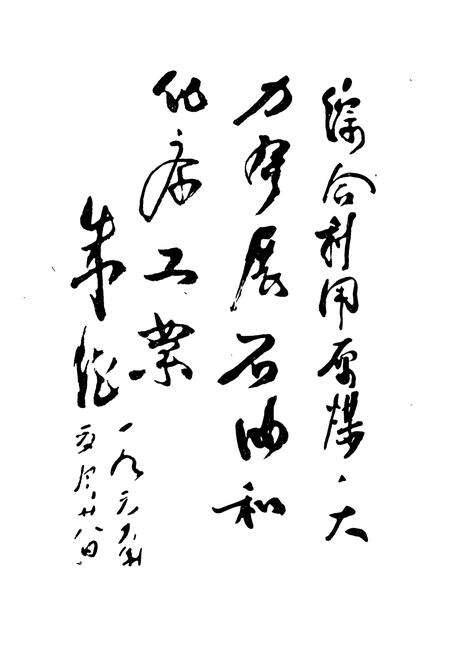 綜合利用原煤、大
力发展石油和
化学工業
朱德
一九六年
五月廿八日